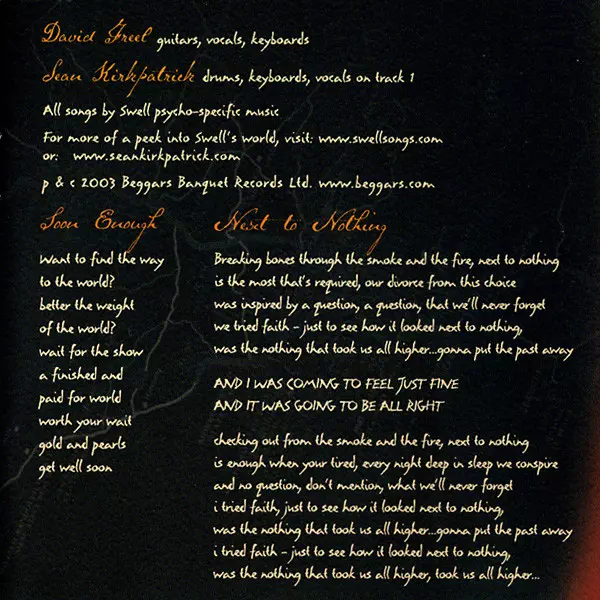 David Freel guitars, vocals, keyboards
Sean Kirkpatrick drums, keyboards, vocals on track 1
All songs by Swell psycho-specific music
For more of a peek into Swell's world, visit: www.swellsongs.com
or: www.seankirkpatrick.com
p & c 2003 Beggars Banquet Records Ltd. www.beggars.com
Soon Enough
Want to find the way
to the world?
better the weight
of the world?
wait for the show
a finished and
paid for world
worth your wait
gold and pearls
get well soon
Next to Nothing
Breaking bones through the smoke and the fire, next to nothing
is the most that's required, our divorce from this choice
was inspired by a question, a question, that we'll never forget
we tried faith - just to see how it looked next to nothing,
was the nothing that took us all higher...gonna put the past away
AND I WAS COMING TO FEEL JUST FINE
AND IT WAS GOING TO BE ALL RIGHT
checking out from the smoke and the fire, next to nothing
is enough when your tired, every night deep in sleep we conspire
and no question, don't mention, what we'll never forget
i tried faith, just to see how it looked next to nothing,
was the nothing that took us all higher...gonna put the past away
i tried faith - just to see how it looked next to nothing,
was the nothing that took us all higher, took us all higher...